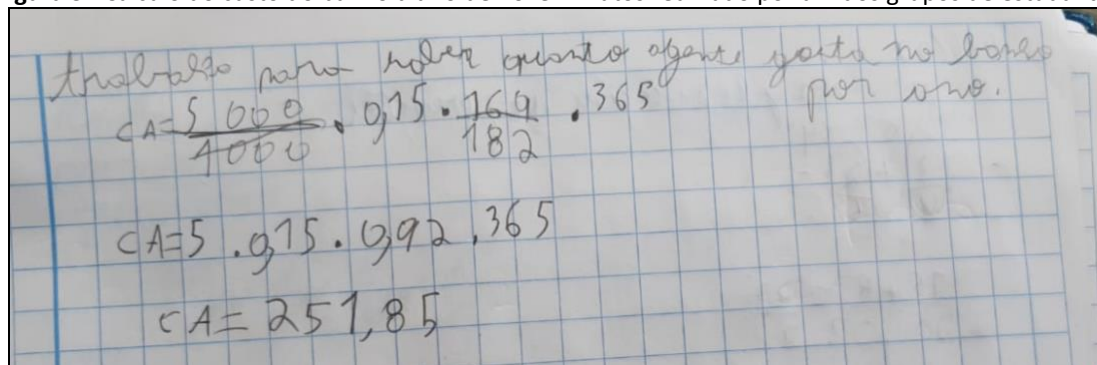 trabalho para saber quanto agente gasta no banho
por ano.
CA=5 000/1000 . 0,15 . 169/182 . 365
CA=5 . 0,15 . 0,92 . 365
CA= 251,85